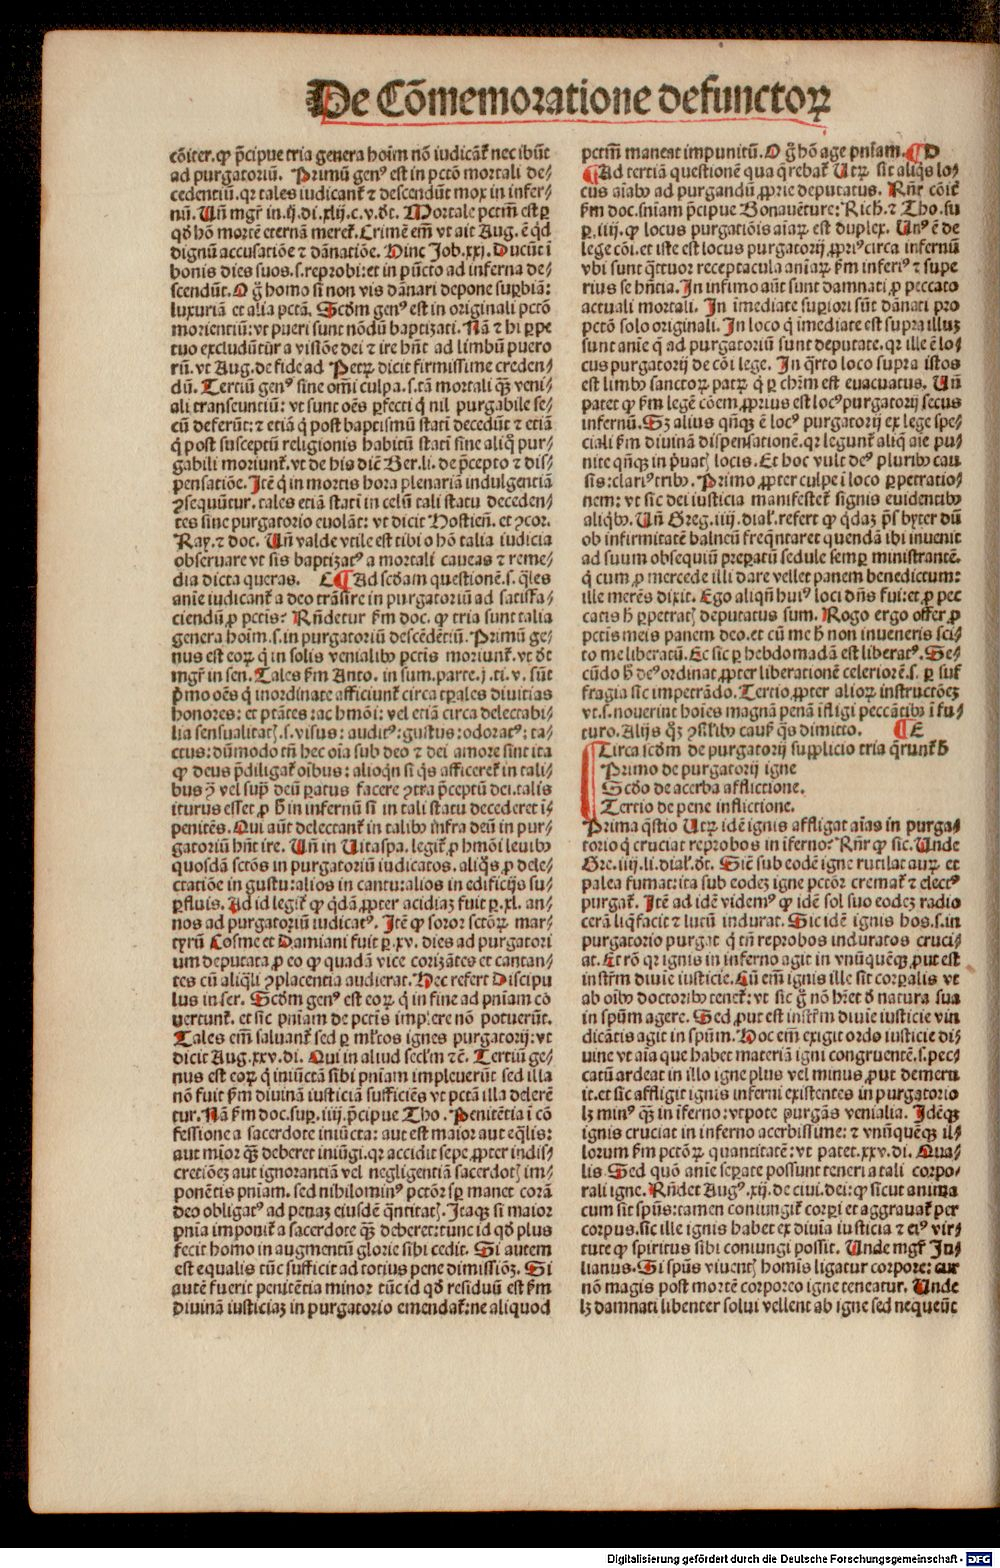 De Cōmemoratione defunctoꝝ
cōiter. ꝙ p̄cipue tria genera hoīm nō iudicāt᷑ nec ibūt
ad purgatoriū. Primū genꝰ est in pctō mortali de⸗
cedentiū. qr tales iudicant᷑ ⁊ descendūt mox in infer⸗
nū. Un̄ mgr̄ in .ij. di. xlij. c. v. ꝺt. Mortale pctm̄ est ꝑ
qd̓ hō mortē eternā meret᷑. Crimē em̄ vt ait Aug. ē qd̓
dignū accusatiōe ⁊ dānatiōe. Hinc Job. xxj. Ducūt ī
bonis dies suos. s. reprobi: et in pūcto ad inferna de⸗
scendūt. O g̊ homo si non vis dānari depone suꝑbiā:
luxuriā et alia pctā. Scd̓m genꝰ est in originali pctō
morientiū: vt pueri sunt nōdū baptizati. Nā ⁊ hi ꝑpe
tuo excludūtur a visiōe dei ⁊ ire hn̄t ad limbū puero
rū. vt Aug. de fide ad Petꝝ dicit firmissime creden⸗
dū. Tertiū genꝰ sine om̄i culpa. s. tā mortali qꝫ veni⸗
ali transeuntiū: vt sunt oēs ꝑfecti q̄ nil purgabile se⸗
cū deferūt: ⁊ etiā q̄ post baptismū stati decedūt ⁊ etiā
q̄ post susceptū religionis habitū stati sine aliq̄ pur⸗
gabili moriunt᷑. vt de his diē Ber. li. de p̄cepto ⁊ dis⸗
pensatiōe. Itē q̄ in mortis hora plenariā indulgentiā
ꝯsequūtur. tales etiā stati in celū tali statu deceden⸗
tes sine purgatorio euolāt: vt dicit Hostien̄. et ꝯcor.
Ray. ⁊ doc. Un̄ valde vtile est tibi o hō talia iudicia
obseruare vt sis baptizatꝰ a mortali caueas ⁊ reme⸗
dia dicta queras. C Ad scd̓am questionē. s. q̄les
anīe iudicant᷑ a deo trāsire in purgatoriū ad satisfa⸗
ciendū ꝓ pctīs? Rn̄detur ẜm doc. ꝙ tria sunt talia
genera hoīm. s. in purgatoriū descēdētiū. Primū ge⸗
nus est eoꝝ q̄ in solis venialibꝰ pctīs moriunt᷑. vt ꝺt
mgr̄ in sen. Tales ẜm Anto. in sum. parte .j. ti. v. sūt
p̄mo oēs q̄ inordinate afficiunt᷑ circa tꝑales diuitias
honores: et ptātes: ac hmōi: vel etiā circa delectabi⸗
lia sensualitatꝭ. s. visus: auditꝰ: gustus: odoratꝰ: ta⸗
ctus: dūmodo tn̄ hec oīa sub deo ⁊ dei amore sint ita
ꝙ deus p̄diligat᷑ oībus: alioqn̄ si q̄s afficeret᷑ in tali⸗
bus ꝯ̄ vel sup̄ deū ꝑatus facere ꝯtra p̄ceptū dei. talis
iturus esset ꝓ h̄ in infernū si in tali statu decederet ī⸗
penitēs. Qui aūt delectant᷑ in talibꝰ infra deū in pur⸗
gatoriū hn̄t ire. Un̄ in Uitaspa. legit᷑ ꝓ hmōi leuibꝰ
quosdā sctōs in purgatoriū iudicatos. aliq̄s ꝓ dele⸗
ctatiōe in gustu: alios in cantu: alios in edificijs su⸗
ꝑfluis. Ad id legit᷑ ꝙ q̄dā ꝓpter acidiaꝫ fuit ꝑ .xl. an⸗
nos ad purgatoriū iudicatꝰ. Itē ꝙ soror sctōꝝ mar⸗
tyrū Cosme et Damiani fuit ꝑ .xv. dies ad purgatori
um deputata ꝓ eo ꝙ quadā vice corizātes et cantan⸗
tes cū aliq̄li ꝯplacentia audierat. Hec refert Discipu
lus in ser. Scd̓m genꝰ est eoꝝ q̄ in fine ad pn̄iam cō
uertunt᷑. et sic pn̄iam de pctīs implere nō potuerūt.
Tales em̄ saluant᷑ sed ꝑ ml̓tos ignes purgatorij: vt
dicit Aug. xxv. di. Qui in aliud secl̓m ⁊c. Tertiū ge⸗
nus est eoꝝ q̄ iniūctā sibi pn̄iam impleuerūt sed illa
nō fuit ẜm diuinā iusticiā sufficiēs vt pctā illa delerē
tur. Nā ẜm doc. sup. iiij. p̄cipue Tho. Penitētia ī cō
fessione a sacerdote iniūcta: aut est maior aut eq̄lis:
aut mīor qꝫ deberet iniūgi. qr accidit sepe ꝓpter indis⸗
cretiōeꝫ aut ignorantiā vel negligentiā sacerdotꝭ im⸗
ponētis pn̄iam. sed nihilominꝰ pctōr sꝑ manet corā
deo obligatꝰ ad penaꝫ eiusdē q̄ntitatꝭ. Itaqꝫ si maior
pn̄ia imponit᷑ a sacerdote qꝫ deberet: tunc id qd̓ plus
fecit homo in augmentū glorie sibi cedit. Si autem
est equalis tūc sufficit ad totius pene dimissiōꝫ. Si
autē fuerit penitētia minor tūc id qd̓ residuū est ẜm
diuinā iusticiaꝫ in purgatorio emendat᷑: ne aliquod
pctm̄ maneat impunitū. O g̊ hō age pn̄iam. D
Ad tertiā questionē qua q̄rebat᷑ Utꝝ sit aliq̄s lo⸗
cus aīabꝰ ad purgandū ꝓprie deputatus. Rn̄r cōit᷑
ẜm doc. sn̄iam p̄cipue Bonauēture: Rich. ⁊ Tho. su
ꝑ .iiij. ꝙ locus purgatiōis aīaꝝ est duplex. Unꝰ ē de
lege cōi. et iste est locus purgatorij ꝓpriꝰ circa infernū
vbi sunt q̄ttuor receptacula aniaꝝ ẜm inferiꝰ ⁊ supe
rius se hn̄tia. In infimo aūt sunt damnati ꝓ peccato
actuali mortali. In īmediate suꝑiori sūt dānati pro
pctō solo originali. In loco q̄ īmediate est supra illuꝫ
sunt anīe q̄ ad purgatoriū sunt deputate. qr ille ē lo⸗
cus purgatorij de cōi lege. In q̄rto loco supra istos
est limbꝰ sanctoꝝ patꝝ q̄ ꝑ chr̄m est euacuatus. Un̄
patet ꝙ ẜm legē cōem ꝓprius est locꝰ purgatorij secus
infernū. Sꝫ alius qn̄qꝫ ē locꝰ purgatorij ex lege spe⸗
ciali ẜm diuinā dispensationē. qr legunt᷑ aliq̄ aīe pu⸗
nite qn̄qꝫ in p̄uatꝭ locis. Et hoc vult deꝰ pluribꝰ cau
sis: clariꝰ tribꝰ. Primo ꝓpter culpe ī loco ꝑpetratio⸗
nem: vt sic dei iusticia manifestet᷑ signis euidentibꝰ
aliqb̄ꝰ. Un̄ Greg. iiij. dial̓. refert ꝙ q̄daꝫ p̄sbyter dū
ob infirmitatē balneū freq̄ntaret quendā ibi inuenit
ad suum obsequiū preꝑatū sedule semꝑ ministrantē.
q̄ cum ꝓ mercede illi dare vellet panem benedictum:
ille merēs dixit. Ego aliqn̄ huiꝰ loci dn̄s fui: et ꝓ pec
catis h̄ ꝑpetratꝭ deputatus sum. Rogo ergo offer ꝓ
pctīs meis panem deo. et cū me h̄ non inueneris sci⸗
to me liberatū. Et sic ꝑ hebdomadā est liberatꝰ. Se⸗
cūdo h̄ deꝰ ordinat ꝓpter liberationē celeriorē. s. ꝑ suf
fragia sic impetrādo. Tertio ꝓpter alioꝝ instructōeꝫ
vt. s. nouerint hoīes magnā penā īfligi peccātibꝰ ī fu⸗
turo. Alijs qꝫ ꝯsilibꝰ causꝭ q̄s dimitto. E
Circa scd̓m de purgatorij supplicio tria q̄runt᷑
Primo de purgatorij igne
Scd̓o de acerba afflictione.
Tertio de pene inflictione.
Prima q̄stio Utꝝ idē ignis affligat aīas in purga⸗
torio q̄ cruciat reprobos in īferno? Rn̄r ꝙ sic. Unde
Gre. iiij. li. dial̓. ꝺt. Sic̄ sub eodē igne rutilat auꝝ et
palea fumat: ita sub eodeꝫ igne pctōr cremat᷑ ⁊ electꝰ
purgat᷑. Itē ad idē videmꝰ ꝙ idē sol suo eodeꝫ radio
cerā liq̄facit ⁊ lutū indurat. Sic idē ignis hos. s. in
purgatorio purgat q̄ tn̄ reprobos induratos cruci⸗
at. Et rō qr ignis in inferno agit in vnūquēqꝫ ꝓut est
instr̄m diuīe iusticie. Cū em̄ ignis ille sit corꝑalis vt
ab oībꝰ doctoribꝰ tenet᷑: vt sic g̊ nō hr̄et d̓ natura sua
in spūm agere. Sed ꝓut est instr̄m diuīe iusticie vin
dicātis agit in spūm. Hoc em̄ exigit ordo iusticie di⸗
uine vt aīa que habet materiā igni congruentē. s. pec⸗
catū ardeat in illo igne plus vel minus ꝓut demeru
it. et sic affligit ignis inferni existentes in purgatorio
lꝫ minꝰ qꝫ in īferno: vtpote purgās venialia. Idēqꝫ
ignis cruciat in inferno acerbissime: ⁊ vnūquēqꝫ il⸗
lorum ẜm pctōꝝ quantitatē: vt patet. xxv. di. Qua⸗
lis. Sed quō anīe seꝑate possunt teneri a tali corpo⸗
rali igne. Rn̄det Augꝰ. xij. de ciui. dei: ꝙ sicut anima
cum sit spūs: tamen coniungit᷑ corꝑi et aggrauat᷑ per
corpus. sic ille ignis habet ex diuīa iusticia ⁊ eiꝰ vir⸗
tute ꝙ spiritus sibi coniungi possit. Unde mgr̄ Ju⸗
lianus. Si spūs viuentꝭ homīs ligatur corpore: cur
nō magis post mortē corporeo igne teneatur. Unde
lꝫ damnati libenter solui vellent ab igne sed nequeūt
Digitalisierung gefördert durch die Deutsche Forschungsgemeinschaft - DFG